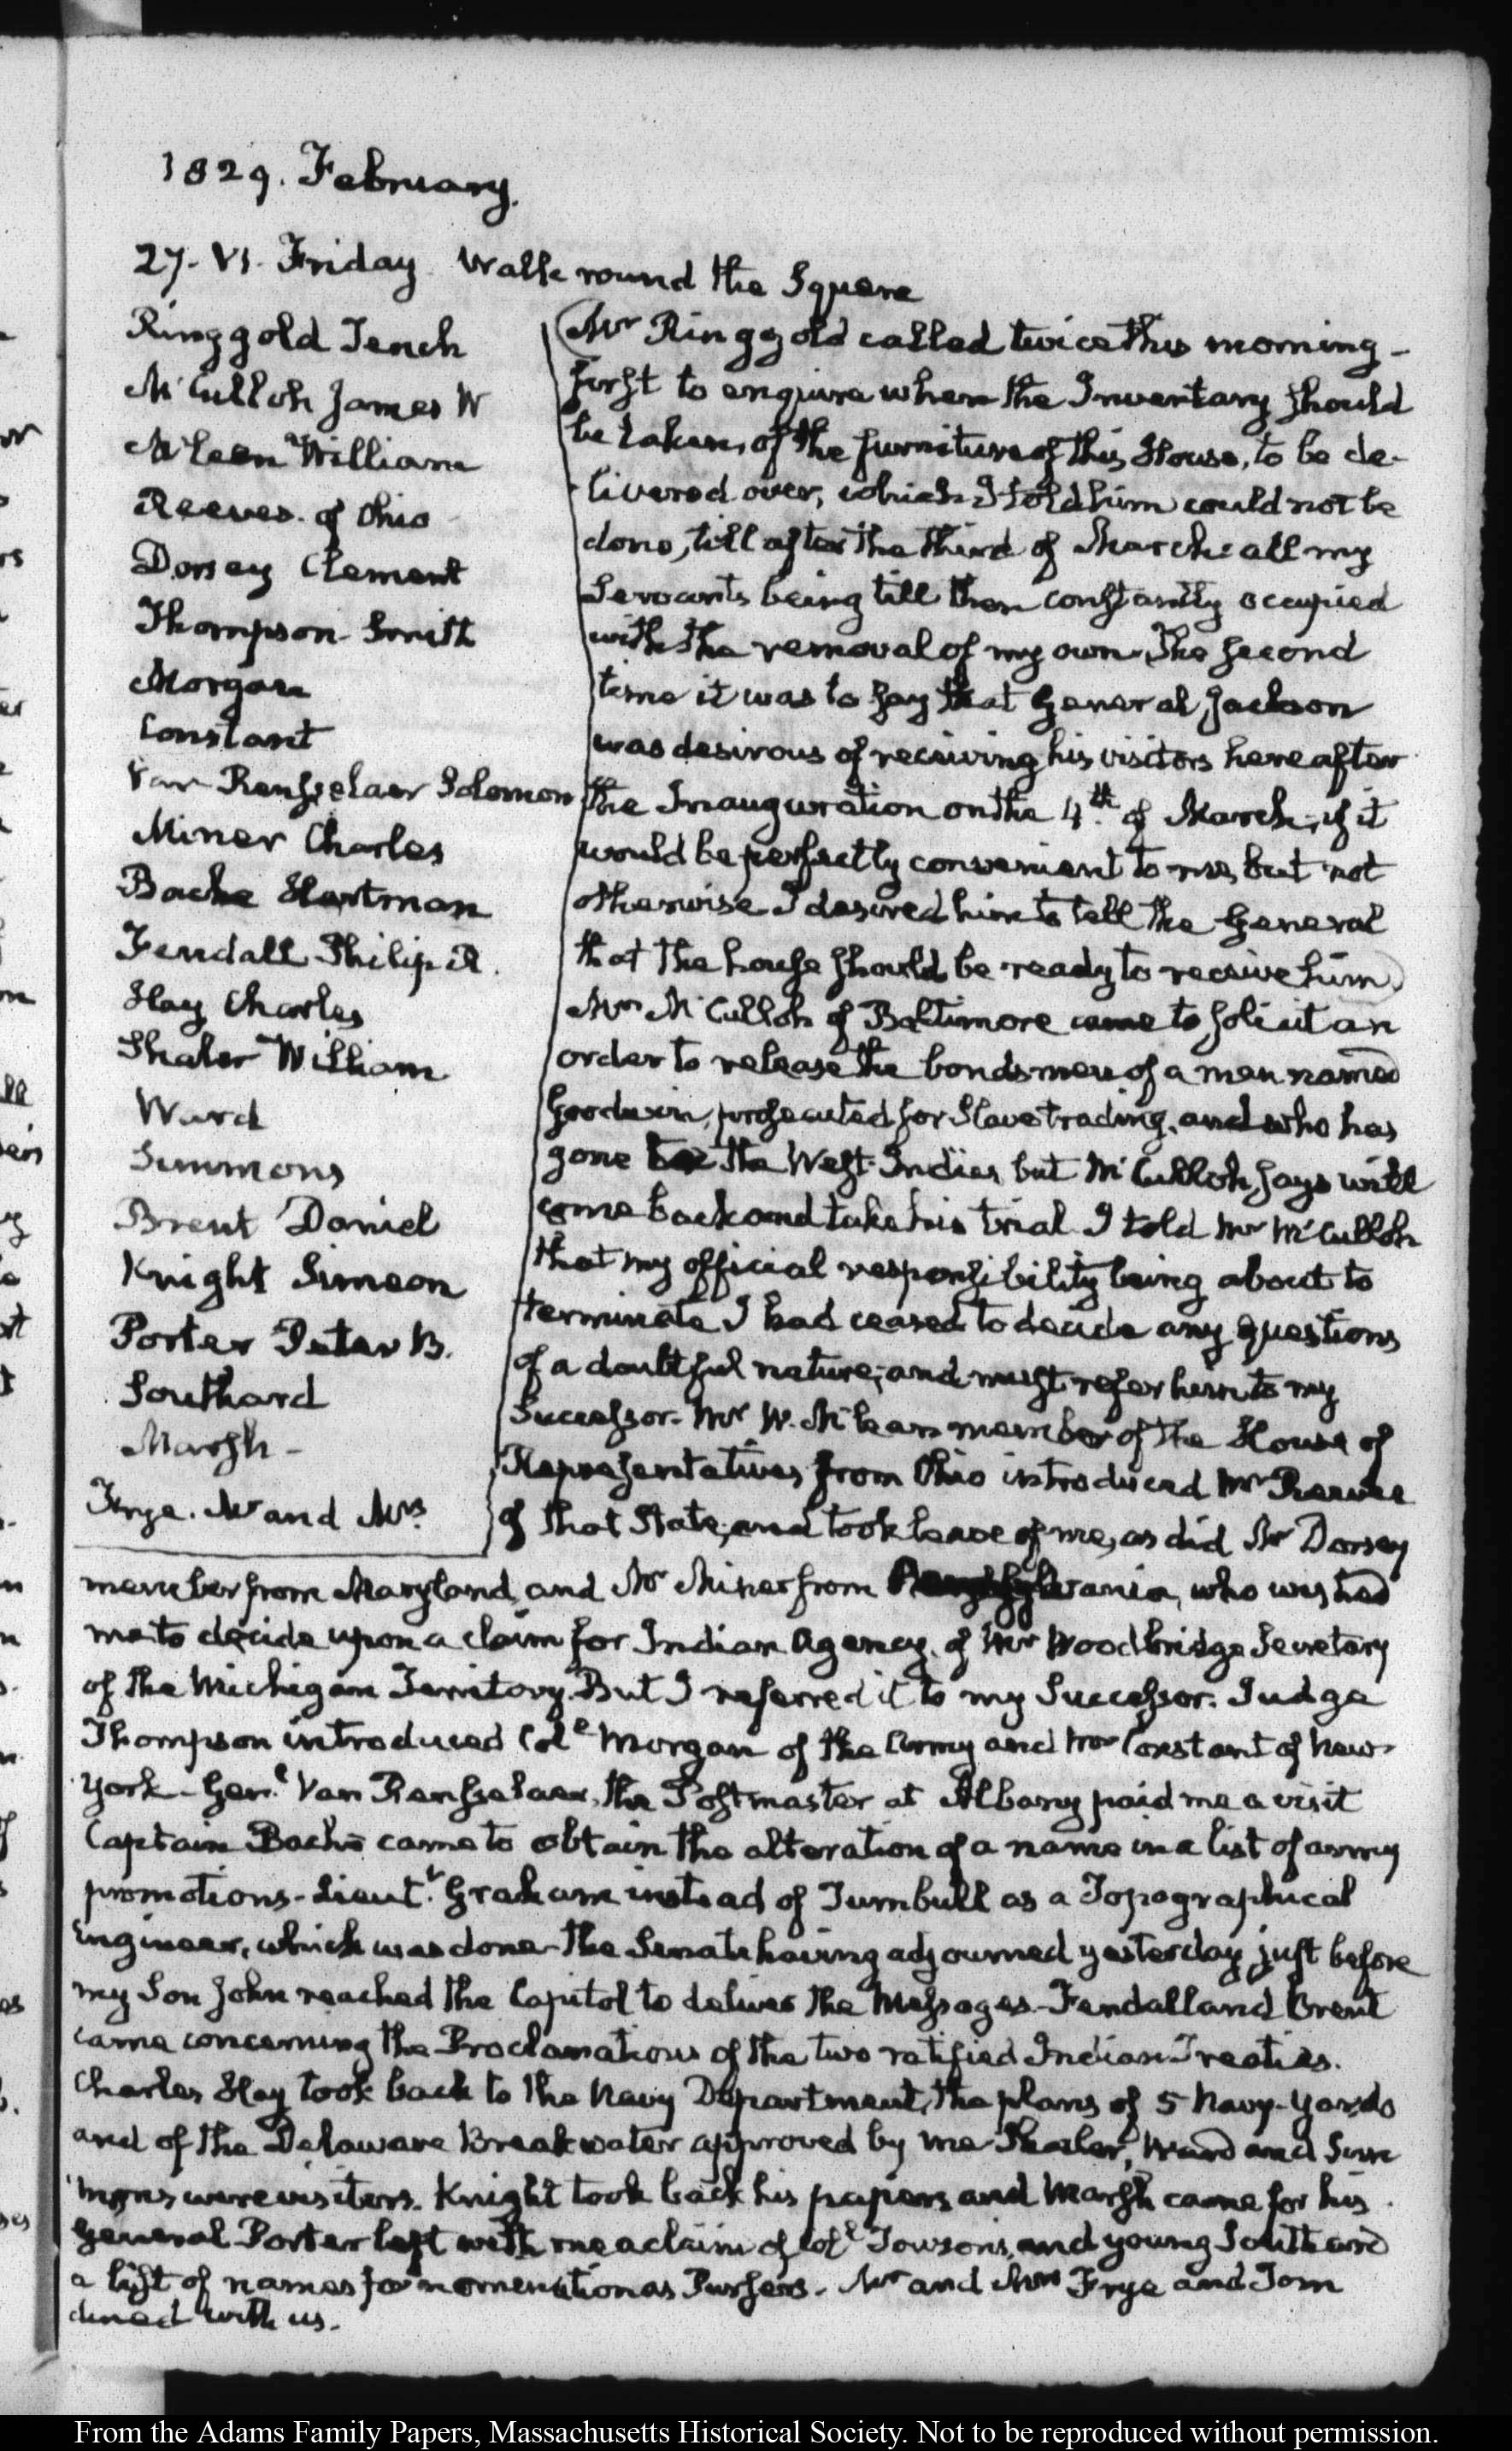 1829. February.
27. VI. Friday Walk round the Square
Ringgold Tench
McCulloh James W
McLean William
Reeves. of Ohio
Dorsey Clement
Thompson Smith
Morgan
Constant
Van Rensselaer Solomon
Miner Charles
Bache Hartman
Fendall Philip R.
Hay Charles
Shaler William
Ward
Simmons
Brent Daniel
Knight Simeon
Porter Peter B.
Southard
Marsh-
Frye. Mr and Mrs
Mr Ringgold called twice this morning-
first to enquire when the Inventary should
be taken, of the furniture of this House, to be de-
livered over, which I told him could not be
done, till after the third of March: all my
Servants being till then constantly occupied
with the removal of my own. The second
time it was to say that General Jackson
was desirous of receiving his visitors here after
the Inauguration on the 4.th of March, if it
would be perfectly convenient to me, but not
otherwise I desired him to tell the General
that the house should be ready to receive him
Mr McCulloh of Baltimore came to solicit an
order to release the bondsmen of a man named
Goodwin, prosecuted for Slave trading, and who has
gone to the West-Indies but McCulloh says will
come back and take his trial I told Mr McCulloh
that my official responsibility being about to
terminate I had ceased to decide any questions
of a doubtful nature; and must refer him to my
Successor- Mr W. McLean member of the House of
Representatives from Ohio introduced Mr Reeves
of that State, and took leave of me, as did Mr Dorsey
member from Maryland, and Mr Miner from Pennsylvania, who wished
me to decide upon a claim for Indian Agency, of Mr Woodbridge Secretary
of the Michigan Territory. But I referred it to my Successor. Judge
Thompson introduced Col. Morgan of the Army and Mr Constant of New-
York- Genl. Van Rensselaer, the Postmaster at Albany paid me a visit
Captain Bache came to obtain the alteration of a name in a list of army
promotions- Lieut.t Graham instead of Turnbull as a Topographical
Engineer, which was done- the Senate having adjourned yesterday just before
my Son John reached the Capitol to deliver the Messages- Fendall and Brent
came concerning the Proclamations of the two ratified Indian Treaties.
Charles Hay took back to the Navy Department, the plans of 5 Navy-Yards
and of the Delaware Breakwater approved by me- Shaler, Ward and Sim
mons were visitors. Knight took back his papers and Marsh came for his
General Porter left with me a claim of Coll Towson's, and young Southard
a list of names for nomination as Pursers. Mr and Mrs Frye and Tom
dined with us.
From the Adams Family Papers, Massachusetts Historical Society. Not to be reproduced without permission.